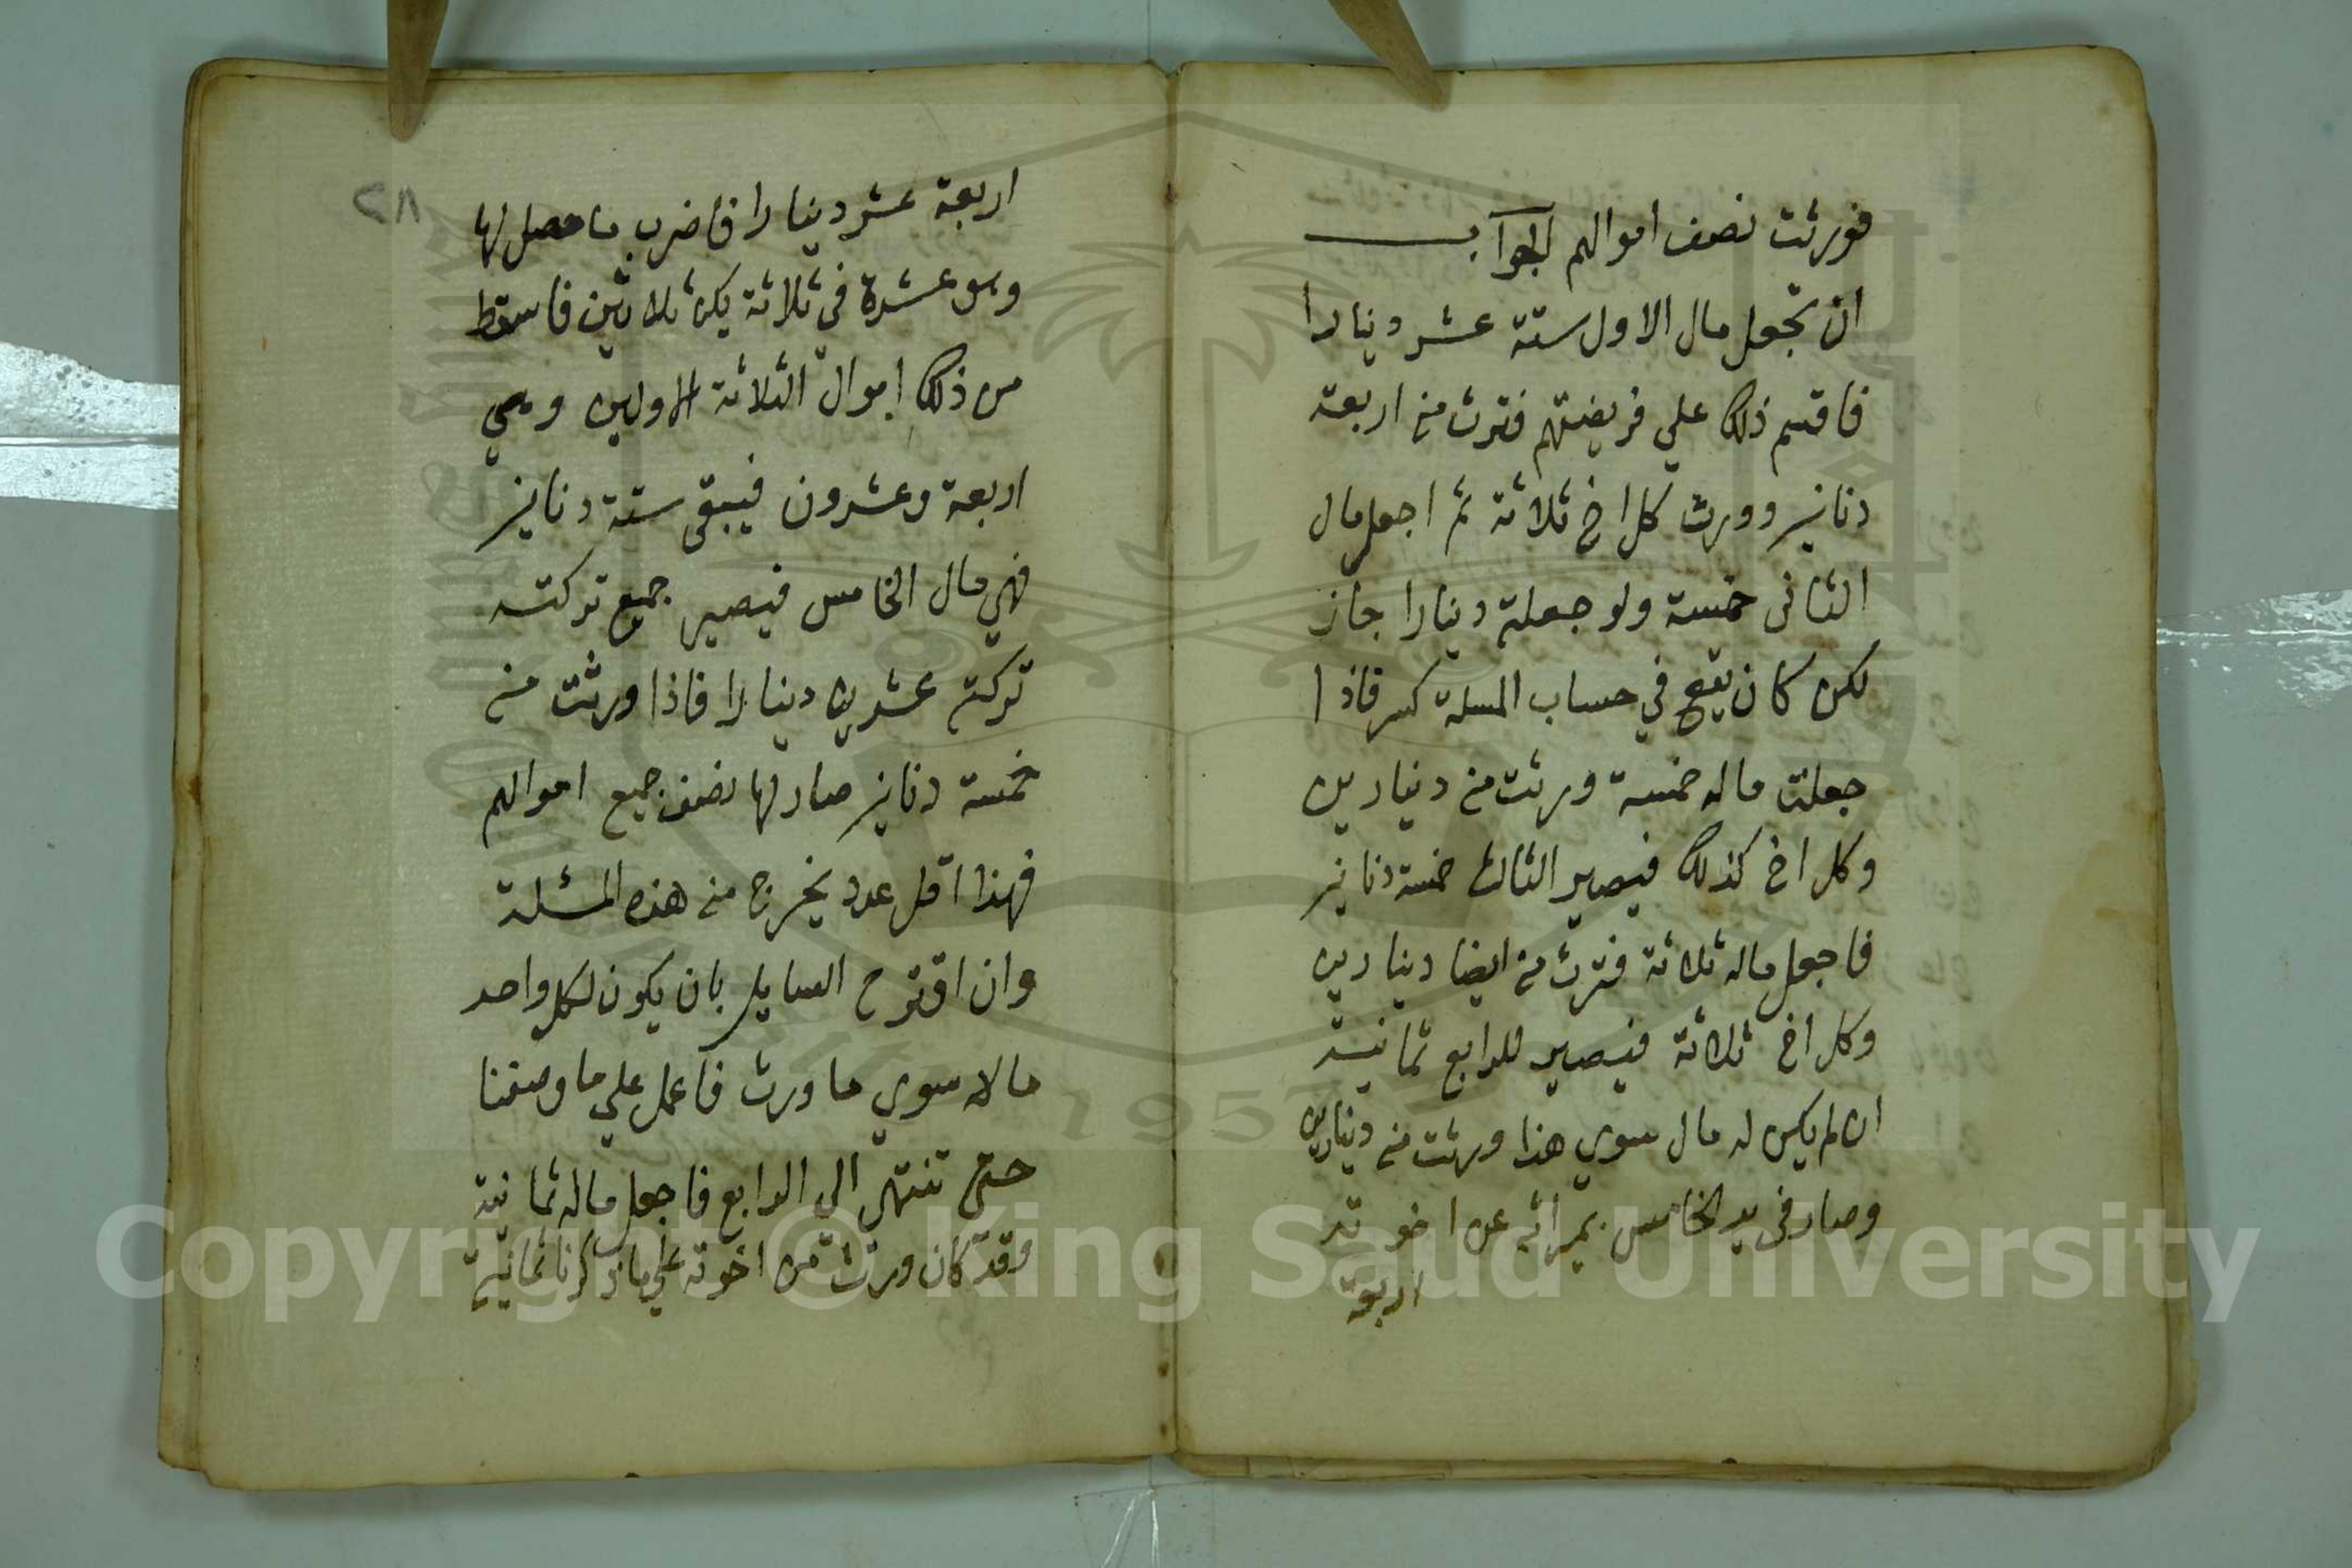 فورثت نصف اموالهم الجواب
ان تجعل مال الاول ستة عشر دينارا
فاقسم ذلك علي فريضتهم فترث منه اربعة
دنانير وورث كل اخ ثلاثة ثم اجعل مال
الثانى خمسة ولو جعلته دينارا جاز
لكن كان يقع في حساب المسلة كسر فاذا
جعلت ماله خمسة ورثت منه دينارين
وكل اخ كذلك فيصير الثالث خمسة دنانير
فاجعل ماله ثلاثة فترث منه ايضا دينارين
وكل اخ ثلاثة فيصير للرابع ثمانية
ان لم يكن له مال سوي هذا ورثت منه دينارين
وصار فى يد الخامس بميراثه عن اخوته
اربعة
٢٨
اربعة عشر دينارا فاضرب ما حصل لها
وهو عشرة في ثلاثة يكن ثلاثين فاسقط
من ذلك اموال الثلاثة الاولين وهي
اربعة وعشرون فيبقى ستة دنانير
فهي مال الخامس فيصير جميع تركته
تركته عشرين دينارا فاذا ورثت منه
خمسة دنانير صار لها نصف جميع اموالهم
فهذا اقل عدد يخرج منه هذه المسئلة
وان اقترح السايل بان يكون لكل واحد
مالا سوي ما ورث فاعمل علي ما وصفنا
حتى تنتهي الي الرابع فاجعل ماله ثمانية
وقد كان ورث من اخوته علي ما ذكرنا ثمانية
Copyright © King Saud University
1957